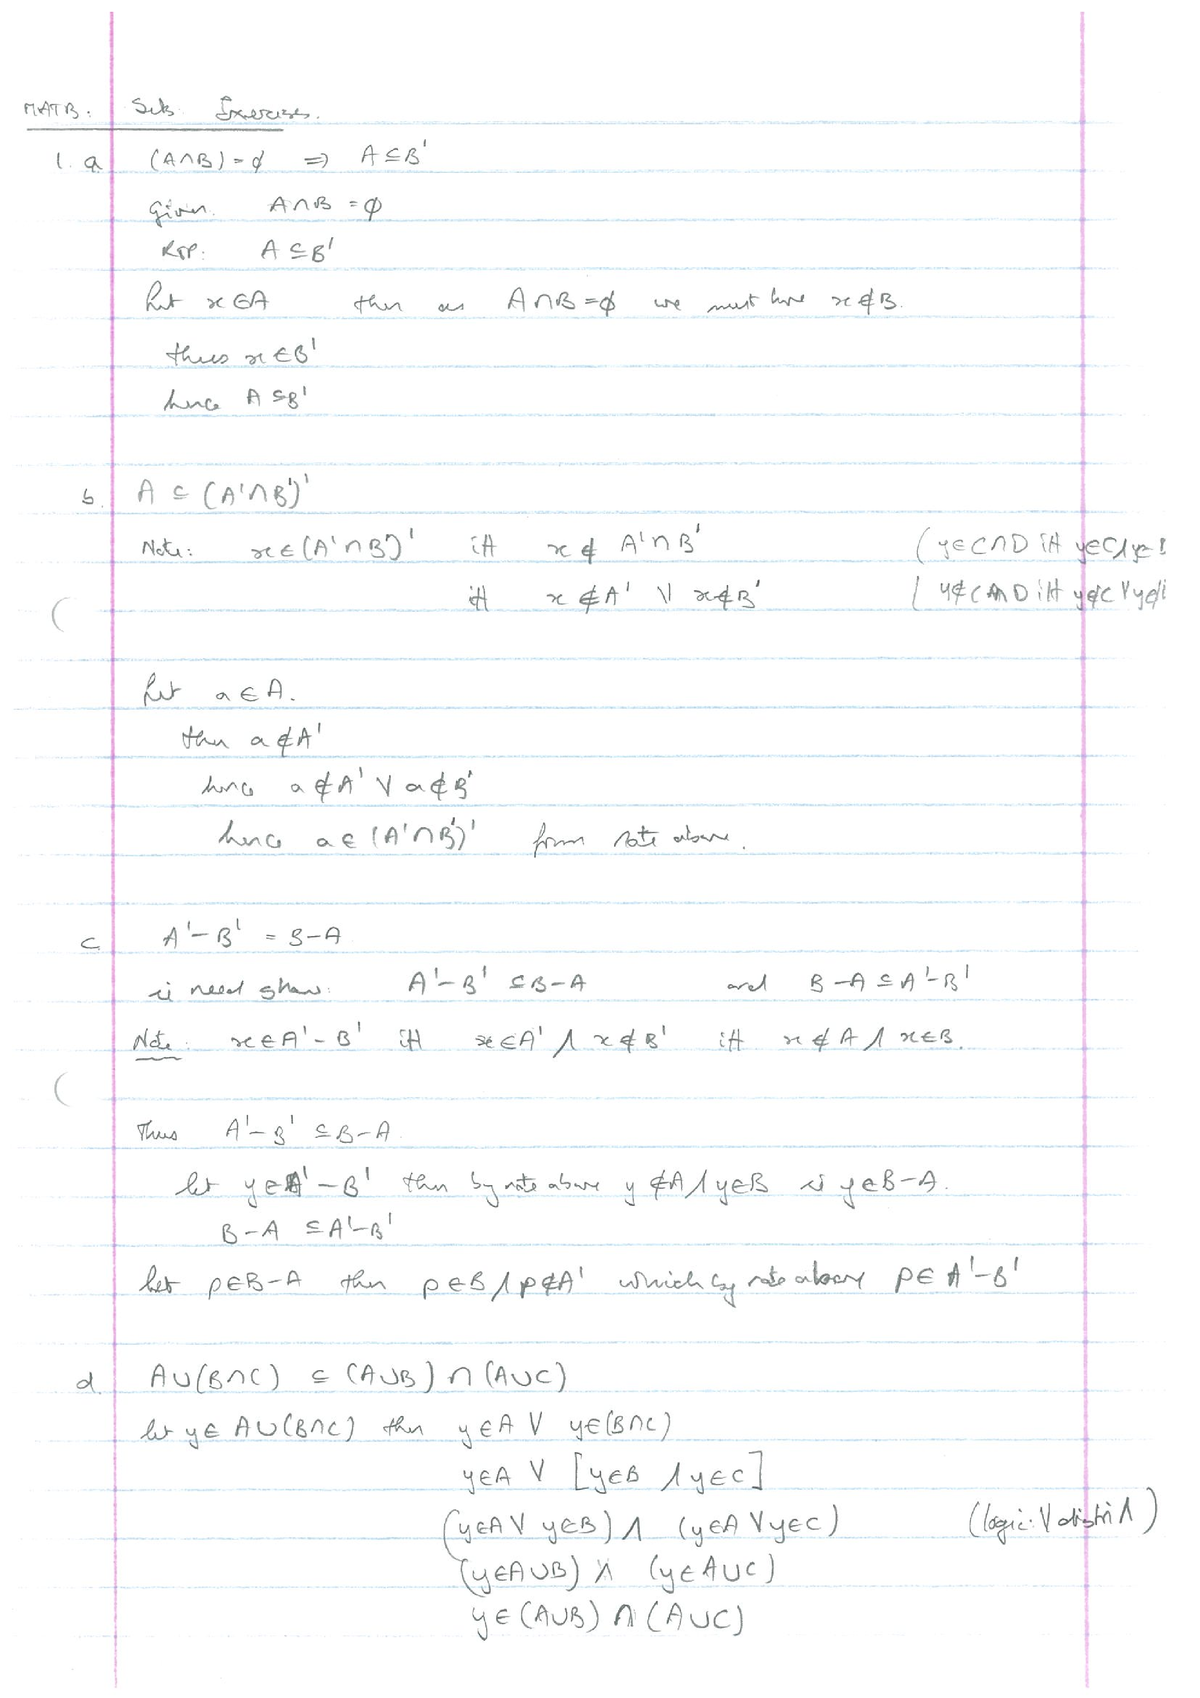 MATB: Sets Exercises.
1. a (A∩B)=φ ⇒ A⊆B'
Given. A∩B=φ
RTP: A⊆B'
Let x∈A then as A∩B=φ we must have x∉B.
thus x∈B'
hence A⊆B'
b. A⊆(A'∩B')'
Note: x∈(A'∩B')' iff x∉A'∩B' (y∈C∩D iff y∈C∧y∈
iff x∉A' ∨ x∉B' ( y∉C∩D iff y∉C∨y∉
Let a∈A.
then a∉A'
hence a∉A' ∨ a∉B'
hence a∈(A'∩B')' from note above.
c A'-B' = B-A
ie need show: A'-B' ⊆B-A and B-A⊆A'-B'
Note: x∈A'-B' iff x∈A' ∧ x∉B' iff x∉A ∧ x∈B.
Thus A'-B' ⊆B-A
let y∈A'-B' then by note above y∉A∧y∈B ie y∈B-A.
B-A ⊆A'-B'
let p∈B-A then p∈B∧p∉A' which by note above p∈A'-B'
d. A∪(B∩C) ⊆ (A∪B)∩(A∪C)
let y∈A∪(B∩C) then y∈A ∨ y∈(B∩C)
y∈A ∨ [y∈B ∧ y∈C]
(y∈A ∨ y∈B) ∧ (y∈A ∨ y∈C) (logic: ∨ distrib ∧)
(y∈A∪B) ∧ (y∈A∪C)
y∈(A∪B)∩(A∪C)